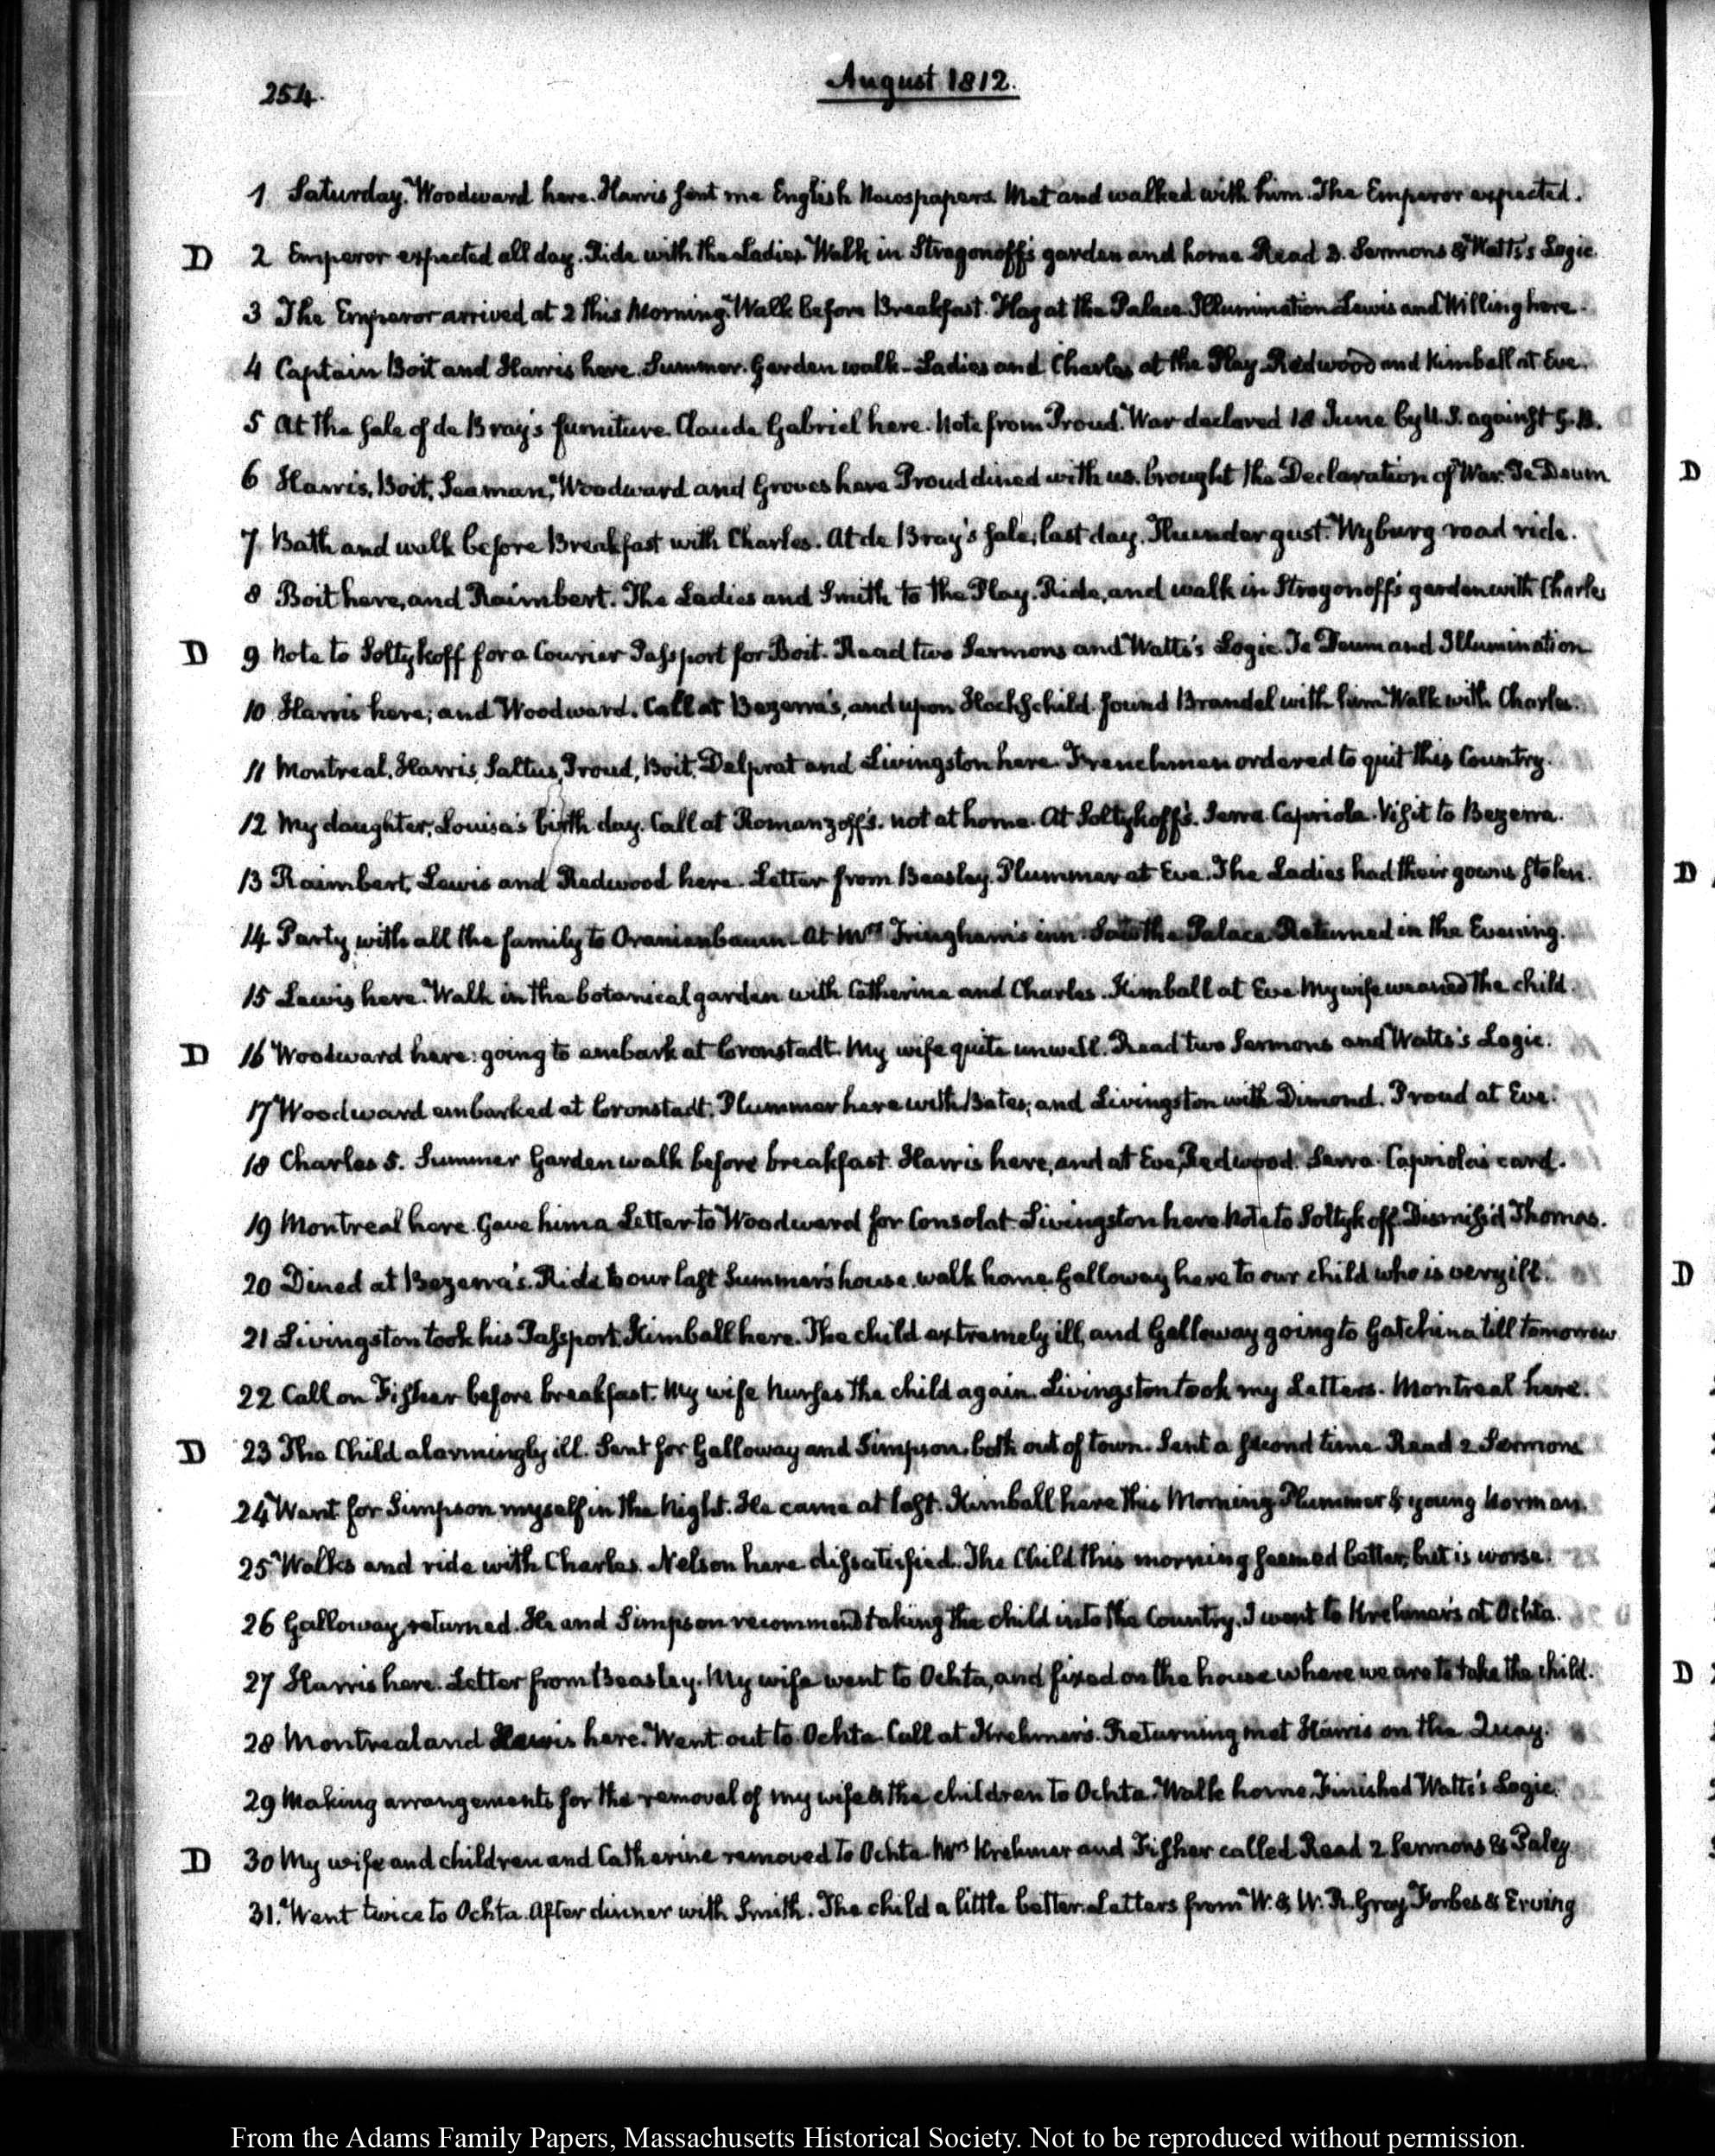 254.
August 1812.
1 Saturday. Woodward here. Harris sent me English Newspapers. Met and walked with him. The Emperor expected.
D 2 Emperor expected all day. Ride with the Ladies. Walk in Strogonoff's garden and home. Read 2. Sermons & Watts's Logic.
3 The Emperor arrived at 2 this Morning. Walk before Breakfast. Flag at the Palace. Illumination. Lewis and Willing here.
4 Captain Boit and Harris here. Summer Garden walk. Ladies and Charles at the Play. Redwood and Kimball at Eve.
5 At the sale of de Bray's furniture. Claude Gabriel here. Note from Proud. War declared 18 June by U.S. against G.B.
6 Harris, Boit, Seaman, Woodward and Groves here Proud dined with us. brought the Declaration of War. Te Deum D
7 Bath and walk before Breakfast with Charles. At de Bray's sale, last day. Thunder gust. Wyburg road ride.
8 Boit here, and Raimbert. The Ladies and Smith to the Play. Ride, and walk in Strogonoff's garden with Charles
D 9 Note to Soltykoff for a Courier Passport for Boit. Read two Sermons and Watts's Logic. Te Deum and Illumination
10 Harris here; and Woodward. Call at Bezerra's, and upon Hochschild. found Brandel with him. Walk with Charles.
11 Montreal, Harris, Saltus, Proud, Boit, Delprat and Livingston here. Frenchmen ordered to quit this Country.
12 My daughter, Louisa's birth day. Call at Romanzoff's. not at home. At Soltykoff's. Serra Capriola. Visit to Bezerra.
13 Raimbert, Lewis and Redwood here. Letter from Beasley. Plummer at Eve. The Ladies had their gowns stolen. D
14 Party with all the family to Oranienbaum. At Mrs Tringham's inn. Saw the Palace. Returned in the Evening.
15 Lewis here. Walk in the botanical garden with Catherine and Charles. Kimball at Eve. My wife weaned the child.
D 16 Woodward here: going to embark at Cronstadt. My wife quite unwell. Read two Sermons and Watts's Logic.
17 Woodward embarked at Cronstadt. Plummer here with Bates; and Livingston with Dimond. Proud at Eve.
18 Charles 5. Summer Garden walk before breakfast. Harris here, and at Eve, Redwood. Serra-Capriola's card.
19 Montreal here. Gave him a Letter to Woodward for Consolat. Livingston here. Note to Soltykoff. Dismiss'd Thomas.
20 Dined at Bezerra's. Ride to our last Summer's house. walk home. Galloway here to our child who is very ill. D
21 Livingston took his Passport. Kimball here. The child extremely ill, and Galloway going to Gatchina till tomorrow
22 Call on Fisher before breakfast. My wife Nurses the child again. Livingston took my Letters. Montreal here.
D 23 The Child alarmingly ill. Sent for Galloway and Simpson, both out of town. Sent a second time. Read 2 Sermons
24 Went for Simpson myself in the Night. He came at last. Kimball here this Morning. Plummer & young Norman.
25 Walks and ride with Charles. Nelson here dissatisfied. The Child this morning seemed better, but is worse.
26 Galloway, returned. He and Simpson recommend taking the child into the Country. I went to Krehmer's at Ochta.
27 Harris here. Letter from Beasley. My wife went to Ochta, and fixed on the house where we are to take the child. D
28 Montreal and Lewis here. Went out to Ochta. Call at Krehmer's. Returning met Harris on the Quay.
29 Making arrangements for the removal of my wife & the children to Ochta. Walk home. Finished Watts's Logic.
D 30 My wife and children and Catherine removed to Ochta. Mrs Krehmer and Fisher called. Read 2 Sermons & Paley
31. Went twice to Ochta. After dinner with Smith. The child a little better. Letters from W. & W. R. Gray, Forbes & Erving
From the Adams Family Papers, Massachusetts Historical Society. Not to be reproduced without permission.